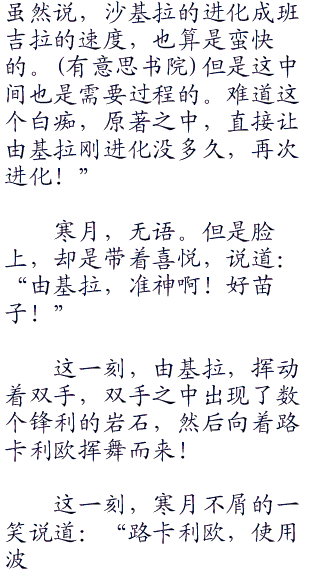 虽然说，沙基拉的进化成班
吉拉的速度，也算是蛮快
的。(有意思书院)但是这中
间也是需要过程的。难道这
个白痴，原著之中，直接让
由基拉刚进化没多久，再次
进化！”
寒月，无语。但是脸
上，却是带着喜悦，说道：
“由基拉，准神啊！好苗
子！”
这一刻，由基拉，挥动
着双手，双手之中出现了数
个锋利的岩石，然后向着路
卡利欧挥舞而来！
这一刻，寒月不屑的一
笑说道：“路卡利欧，使用
波